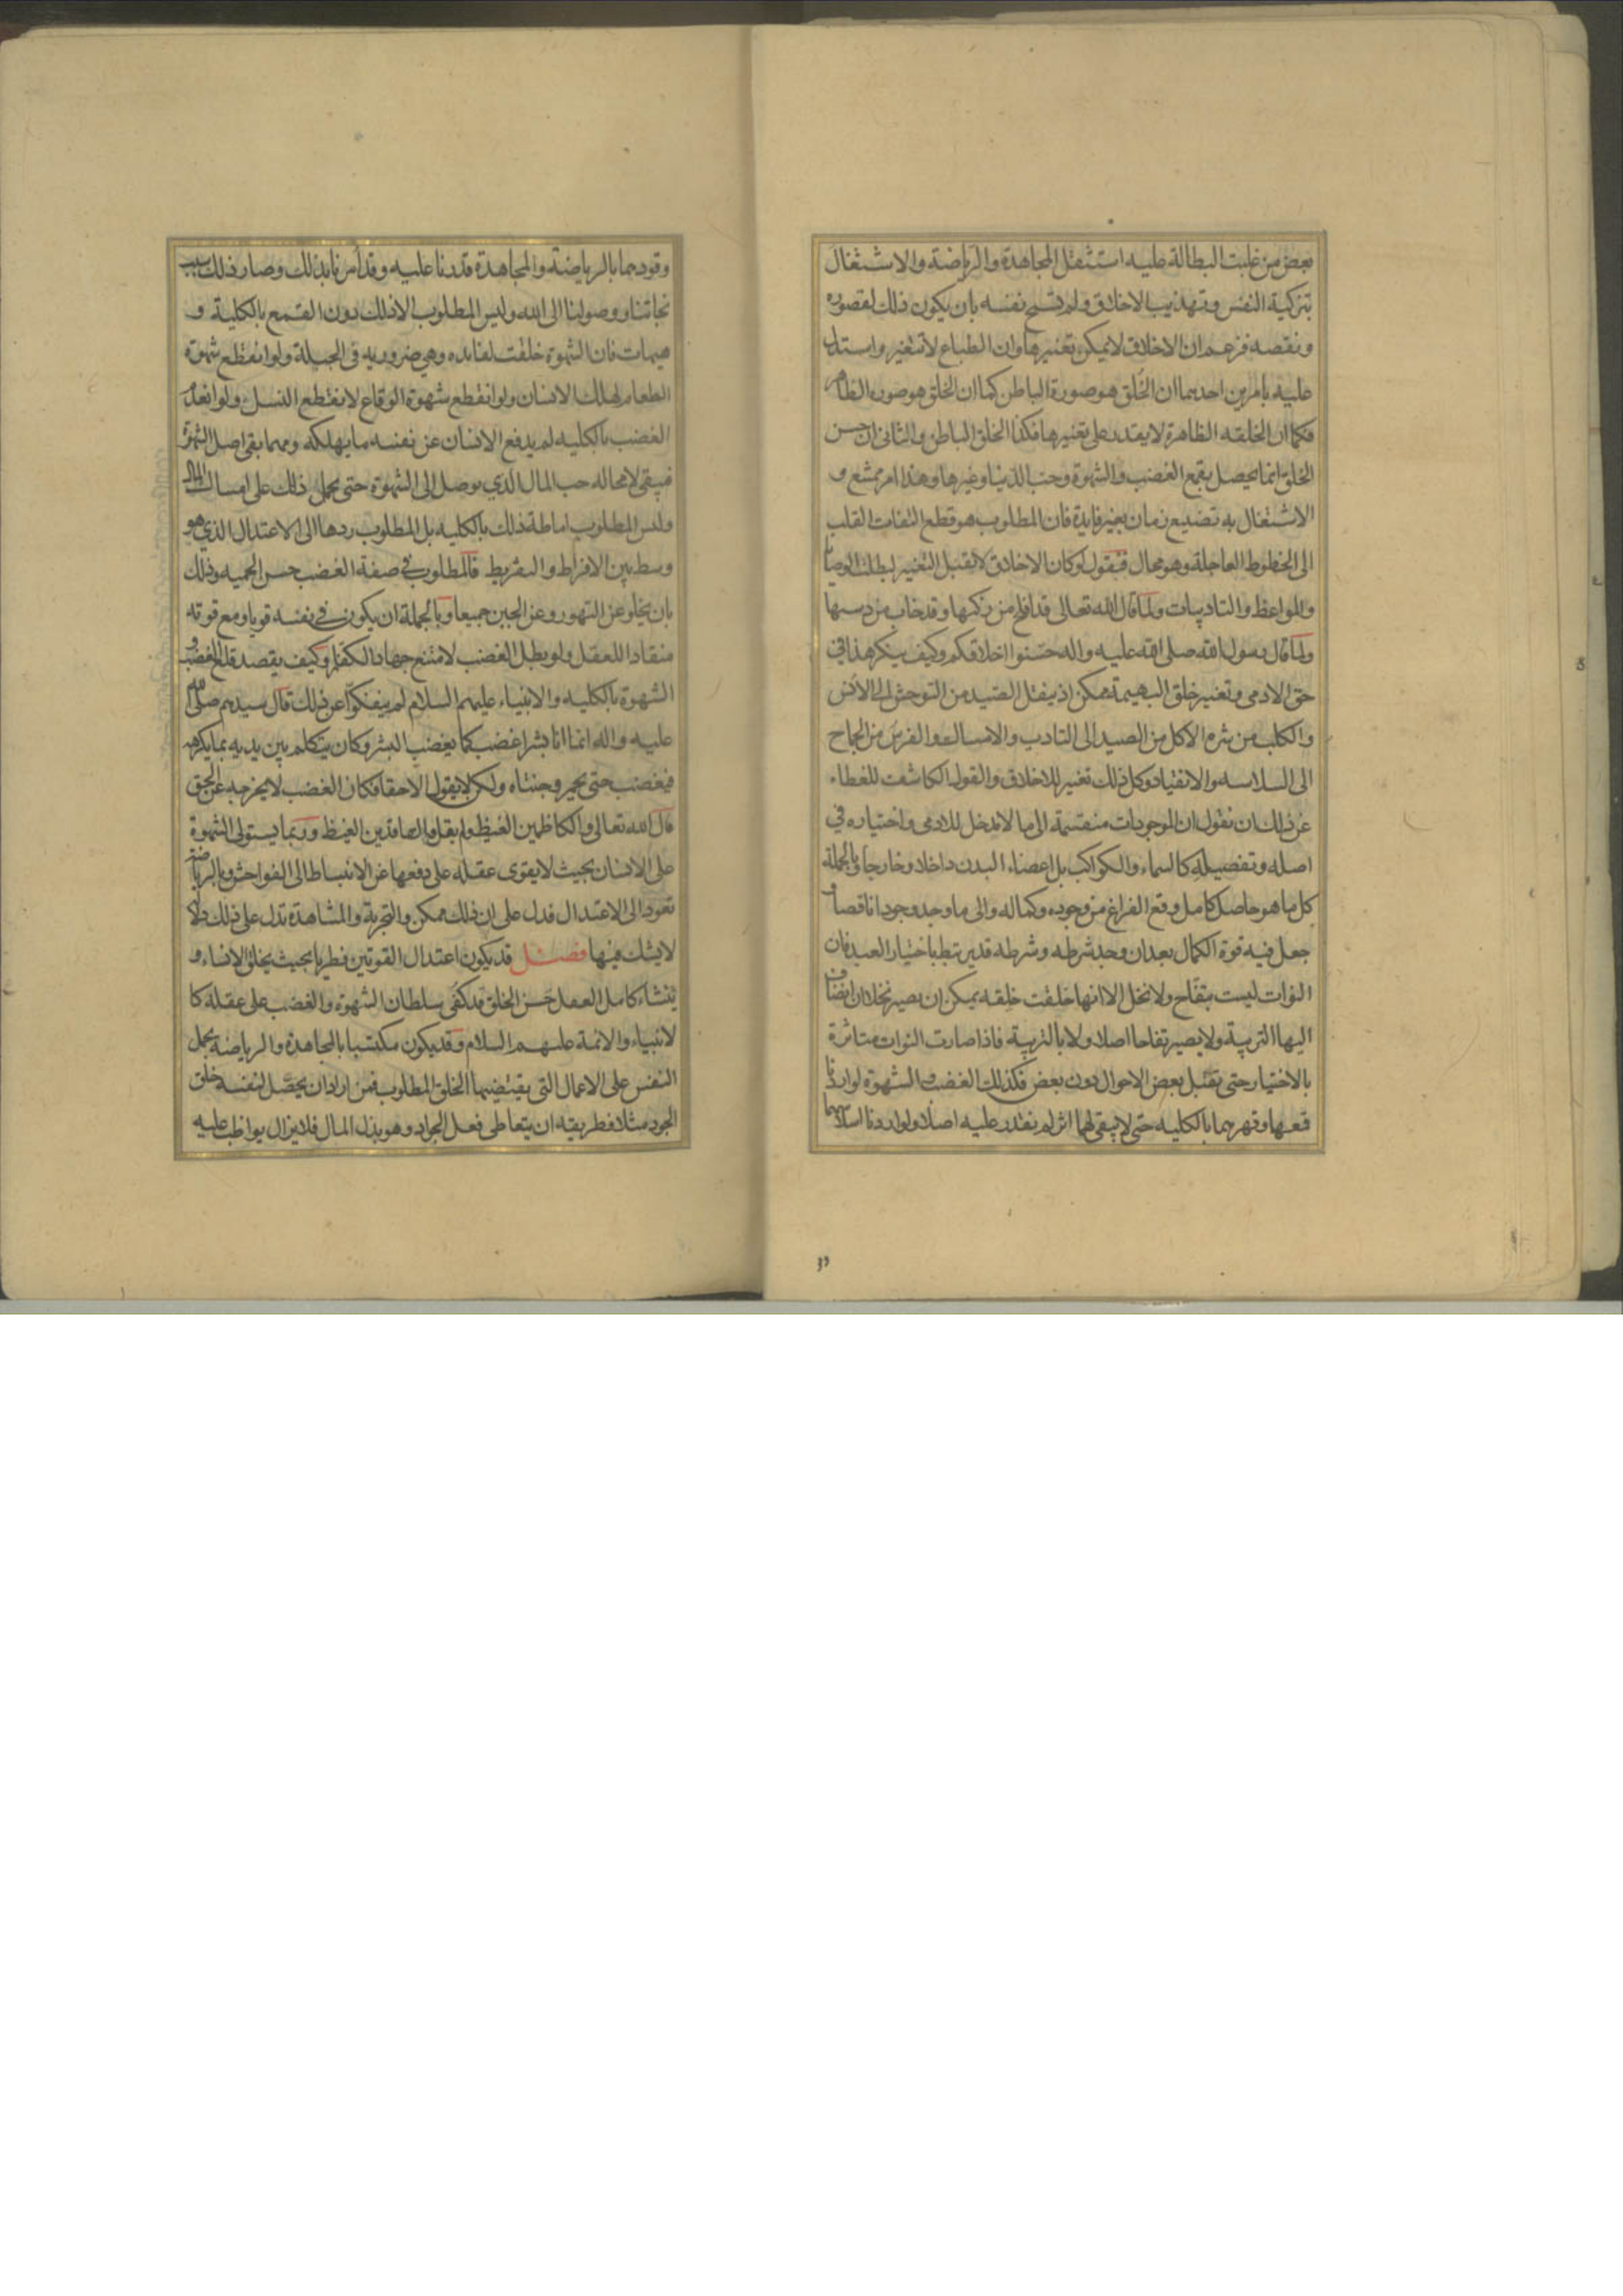 بعض من غلبت البطالة عليه استثقل المجاهدة والرياضة والاشتغال
بتزكية النفس وتهذيب الاخلاق ولم تسمح نفسه بان يكون ذلك لقصوره
ونقصه فزعم ان الاخلاق لا يمكن تغييرها وان الطباع لا تتغير واستدل
عليه بامرين احدهما ان الخُلق هو صورة الباطن كما ان الخلق هو صورة الظاهر
فكما ان الخلقه الظاهرة لا يقدر على تغييرها فكذا الخلق الباطن والثانى ان حسن
الخلق انما يحصل بقمع الغضب والشهوة وحب الدنيا وغيرها وهذا امر ممتنع و
الاشتغال به تضييع زمان بغير فايدة فان المطلوب هو قطع التفات القلب
الى الحظوظ العاجلة وهو محال فيقول لو كان الاخلاق لا تقبل التغيير لبطلت الوصايا
والمواعظ والتاديبات ولما قال الله تعالى قد افلح من زكيها وقد خاب من دسيها
ولما قال رسول الله صلى الله عليه واله حسّنوا اخلاقكم وكيف ينكر هذا في
حق الادمى وتغيير خلق البهيمة ممكن اذ ينقل الصيد من التوحش الى الانس
والكلب من شره الاكل من الصيد الى التادب والامساك والفرس من الجماح
الى السلاسه والانقياد وكل ذلك تغيير للاخلاق والقول الكاشف للغطاء
عن ذلك ان نقول ان الموجودات منقسمة الى ما لا مدخل للادمى واختياره في
اصله وتفصيله كالسماء والكواكب بل اعضاء البدن داخلا وخارجا وبالجملة
كل ما هو حاصل كامل وقع الفراغ من وجوده وكماله والى ما وجد وجودا ناقصا و
جعل فيه قوة الكمال بعد ان وجد شرطه وشرطه قد يرتبط باختيار العبد فان
النوات ليست بتفاح ولا نخل الا انها خلقت خلقه يمكن ان يصير نخلا ان انضاف
اليها التربية ولا يصير تفاحا اصلا ولا بالتربية فاذا صارت النوات متاثرة
بالاختيار حتى تقبل بعض الاحوال دون بعض فكذلك الغضب والشهوة لو اردنا
قمعها وقهرهما بالكليه حتى لا يبقى لهما اثر لم نقدر عليه اصلا ولو اردنا اسلاسهما
وقودهما بالرياضة والمجاهدة قدرنا عليه وقد امرنا بذلك وصار ذلك سبب
نجاتنا ووصولنا الى الله وليس المطلوب الا ذلك دون القمع بالكلية و
هيهات فان الشهوة خلقت لفايده وهي ضروريه فى الجبلة ولو انقطع شهوة
الطعام لهلك الانسان ولو انقطع شهوة الوقاع لانقطع النسل ولو انعدم
الغضب بالكليه لم يدفع الانسان عن نفسه ما يهلكه ومهما بقى اصل الشهوة
فيبقى لا محاله حب المال الذي يوصل الى الشهوة حتى يحمل ذلك على امساك المال
وليس المطلوب اماطة ذلك بالكليه بل المطلوب ردها الى الاعتدال الذي هو
وسط بين الافراط والتفريط فالمطلوب في صفة الغضب حسن الحميه وذلك
بان يخلو عن التهور وعن الجبن جميعا وبالجملة ان يكون في نفسه قويا ومع قوته
منقادا للعقل ولو بطل الغضب لامتنع جهاد الكفار وكيف يقصد قلع الغضب و
الشهوة بالكليه والانبياء عليهم السلام لم ينفكوا عن ذلك قال سيدهم صلى الله
عليه واله انما انا بشر اغضب كما يغضب البشر وكان يتكلم بين يديه بما يكرهه
فيغضب حتى يحمر وجنتاه ولكن لا يقول الا حقا فكان الغضب لا يخرجه عن الحق
قال الله تعالى والكاظمين الغيظ ولم يقل والفاقدين الغيظ وربما يستولى الشهوة
على الانسان بحيث لا يقوى عقله على دفعها عن الانبساط الى الفواحش وبالرياضة
تعود الى الاعتدال فدل على ان ذلك ممكن والتجربة والمشاهدة تدل على ذلك دلالة
لا يشك فيها فصـل قد يكون اعتدال القوتين فطريا بحيث يخلق الانساء و
ينشاء كامل العقل حَسن الخلق قد كفى سلطان الشهوة والغضب على عقله كا
لانبياء والائمة عليهم السلام وقد يكون مكتسبا بالمجاهدة والرياضة بحمل
النفس على الاعمال التى يقتضيها الخلق المطلوب فمن اراد ان يحصّل لنفسه خلق
الجود مثلا فطريقه ان يتعاطى فعل الجواد وهو بذل المال فلا يزال يواظب عليه